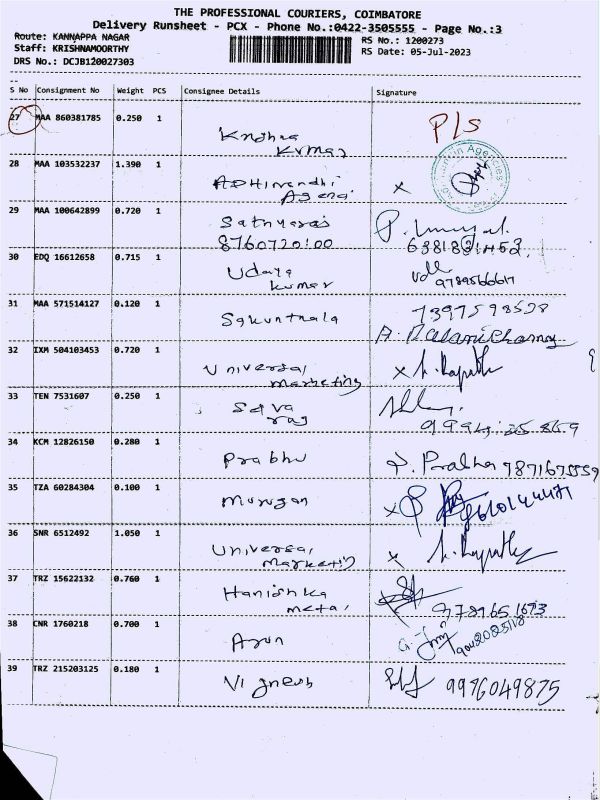 THE PROFESSIONAL COURIERS, COIMBATORE
Delivery Runsheet - PCX - Phone No.:0422-3505555 - Page No.:3
Route: KANNAPPA NAGAR
RS No.: 1200273
Staff: KRISHNAMOORTHY
RS Date: 05-Jul-2023
DRS No.: DCJB120027303
S No Consignment No Weight PCS Consignee Details Signature
27 MAA 860381785 0.250 1
P/S
Kumar
28 MAA 103532237 1.390 1
x
29 MAA 100642899 0.720 1
Sathyaraj
P.
30 EDQ 16612658 0.715 1
Udaya
Kumar
9789566617
31 MAA 571514127 0.120 1
Sakunthala
7397598528
A. Palanichamy
32 IXM 504103453 0.720 1
Universal
marketing
x
33 TEN 7531607 0.250 1
Selva
raj
34 KCM 12826150 0.280 1
Prabhu
P. Prabha
35 TZA 60284304 0.100 1
Murugan
x
36 SNR 6512492 1.050 1
Universal
marketing
x
37 TRZ 15622132 0.760 1
Hanishka
metal
9789651673
38 CNR 1760218 0.700 1
Arun
39 TRZ 215203125 0.180 1
Vignesh
9976049875